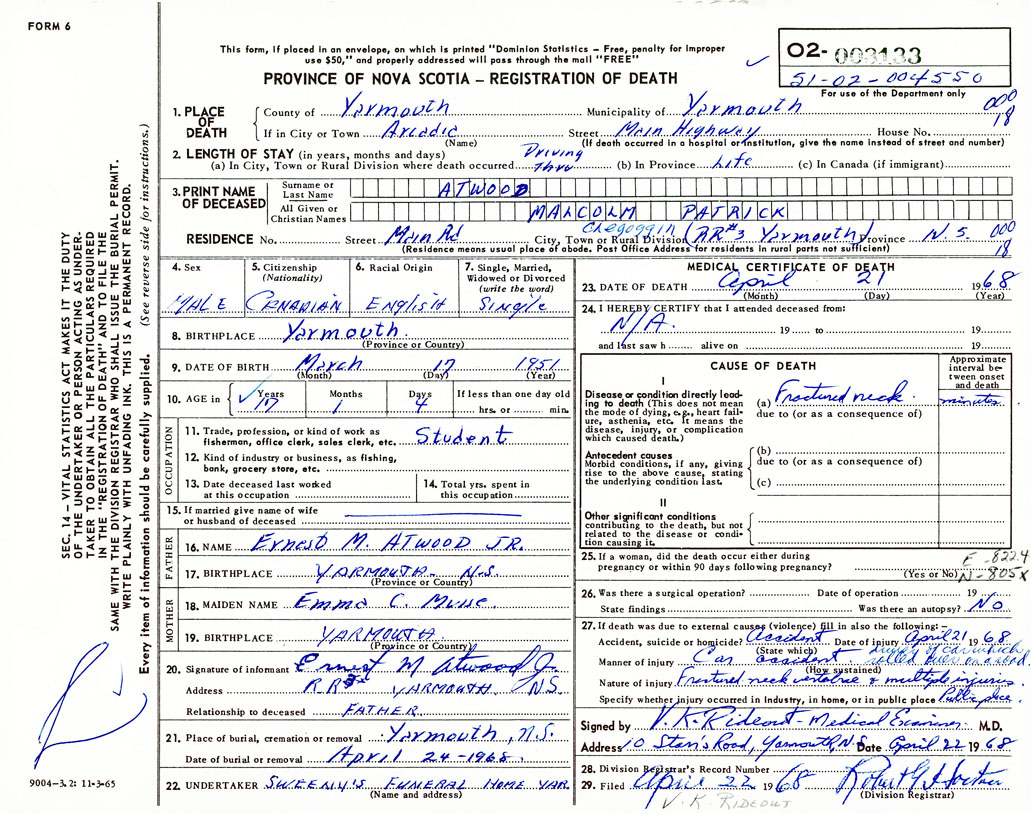 FORM 6
This form, if placed in an envelope, on which is printed "Dominion Statistics – Free, penalty for improper
use $50," and properly addressed will pass through the mail "FREE"
PROVINCE OF NOVA SCOTIA – REGISTRATION OF DEATH
02- 003133
51-02-004550
For use of the Department only
1. PLACE OF DEATH
County of Yarmouth Municipality of Yarmouth 000
18
If in City or Town Arcadia Street Main Highway House No.
(Name) (If death occurred in a hospital or institution, give the name instead of street and number)
2. LENGTH OF STAY (in years, months and days)
(a) In City, Town or Rural Division where death occurred Driving thru (b) In Province Life (c) In Canada (if immigrant)
3. PRINT NAME OF DECEASED
Surname or Last Name ATWOOD
All Given or Christian Names MALCOLM PATRICK
RESIDENCE No. Street Main Rd City, Town or Rural Division Chegoggin (RR#3 Yarmouth) Province N.S. 000
18
(Residence means usual place of abode. Post Office Address for residents in rural parts not sufficient)
4. Sex MALE
5. Citizenship (Nationality) CANADIAN
6. Racial Origin ENGLISH
7. Single, Married, Widowed or Divorced (write the word) Single
8. BIRTHPLACE Yarmouth
(Province or Country)
9. DATE OF BIRTH March 17 1951
(Month) (Day) (Year)
10. AGE in Years 17 Months 1 Days 4 If less than one day old hrs. or min.
OCCUPATION
11. Trade, profession, or kind of work as
fisherman, office clerk, sales clerk, etc. Student
12. Kind of industry or business, as fishing,
bank, grocery store, etc.
13. Date deceased last worked
at this occupation
14. Total yrs. spent in
this occupation
15. If married give name of wife
or husband of deceased
FATHER
16. NAME Ernest M. ATWOOD JR.
17. BIRTHPLACE YARMOUTH N.S.
(Province or Country)
MOTHER
18. MAIDEN NAME Emma C. Muise
19. BIRTHPLACE YARMOUTH
(Province or Country)
20. Signature of informant Ernest M Atwood Jr.
Address R.R. YARMOUTH N.S.
Relationship to deceased FATHER
21. Place of burial, cremation or removal Yarmouth, N.S.
Date of burial or removal April 24-1968
22. UNDERTAKER SWEENY'S FUNERAL HOME YAR
(Name and address)
MEDICAL CERTIFICATE OF DEATH
23. DATE OF DEATH April 21 1968
(Month) (Day) (Year)
24. I HEREBY CERTIFY that I attended deceased from:
N/A. 19 to 19
and last saw h alive on 19
CAUSE OF DEATH
Approximate interval between onset and death
I
Disease or condition directly leading
to death (This does not mean
the mode of dying, e.g., heart failure,
asthenia, etc. It means the
disease, injury, or complication
which caused death.)
(a) Fractured neck minutes
due to (or as a consequence of)
Antecedent causes
Morbid conditions, if any, giving
rise to the above cause, stating
the underlying condition last.
(b)
due to (or as a consequence of)
(c)
II
Other significant conditions
contributing to the death, but not
related to the disease or condition
causing it.
25. If a woman, did the death occur either during
pregnancy or within 90 days following pregnancy?
(Yes or No)
E-822.4
N-805X
26. Was there a surgical operation? Date of operation 19
State findings Was there an autopsy? No
27. If death was due to external causes (violence) fill in also the following:–
Accident, suicide or homicide? Accident Date of injury April 21 1968
(State which)
Manner of injury Car accident. driver of car which rolled over on a road
(How sustained)
Nature of injury Fractured neck vertebrae & multiple injuries.
Specify whether injury occurred in industry, in home, or in public place Public place
Signed by V.K. Rideout - Medical Examiner M.D.
Address 10 Starr's Road, Yarmouth, N.S. Date April 22 1968
28. Division Registrar's Record Number
29. Filed April 22 1968
(Division Registrar)
V. K. RIDEOUT
SEC. 14 – VITAL STATISTICS ACT MAKES IT THE DUTY
OF THE UNDERTAKER OR PERSON ACTING AS UNDERTAKER
TO OBTAIN ALL THE PARTICULARS REQUIRED
IN THE "REGISTRATION OF DEATH" AND TO FILE THE
SAME WITH THE DIVISION REGISTRAR WHO SHALL ISSUE THE BURIAL PERMIT.
WRITE PLAINLY WITH UNFADING INK. THIS IS A PERMANENT RECORD.
Every item of information should be carefully supplied. (See reverse side for instructions.)
9004-3.2: 11-3-65